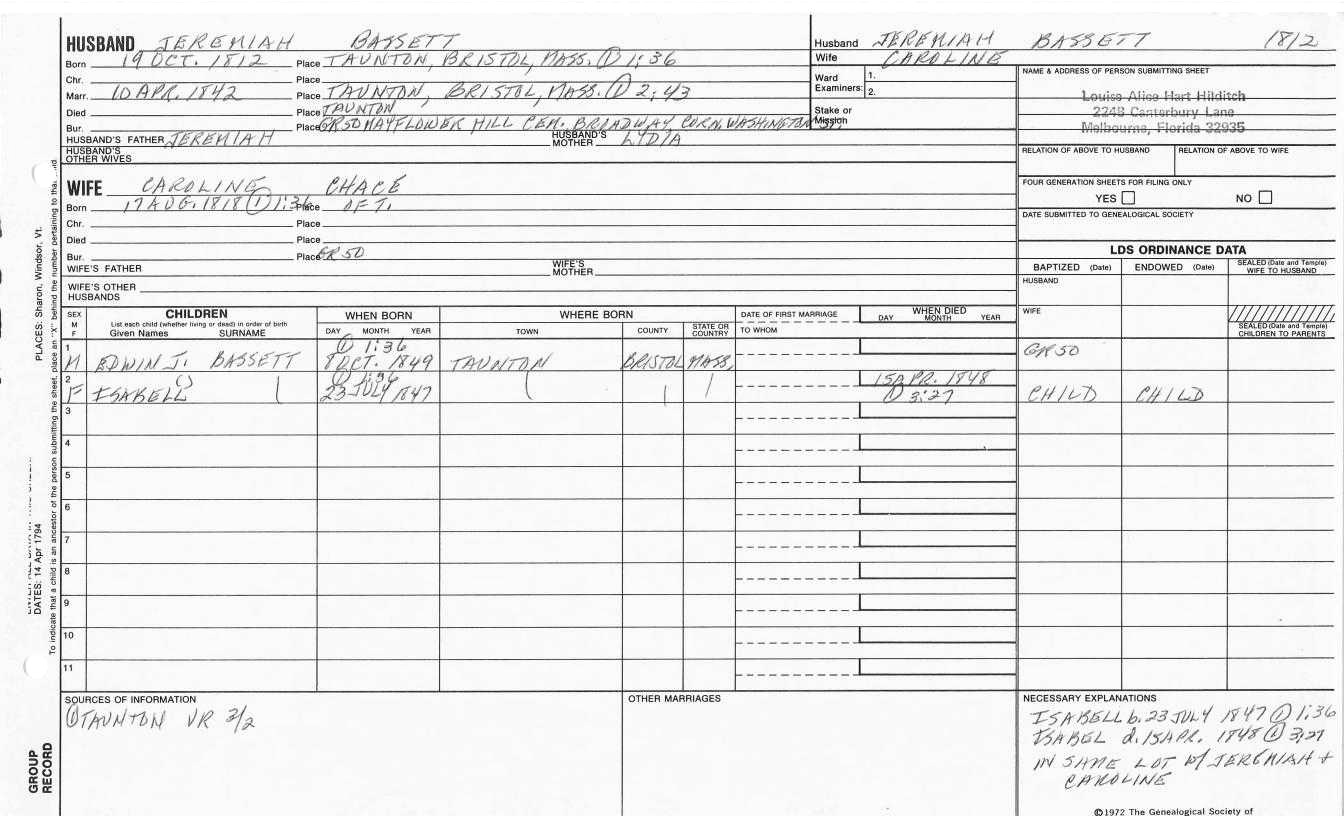 HUSBAND JEREMIAH BASSETT
Born 19 OCT. 1812 Place TAUNTON, BRISTOL, MASS. ① 1:36
Chr. Place
Marr. 10 APR. 1842 Place TAUNTON, BRISTOL, MASS. ① 2:43
Died Place TAUNTON
Bur. Place GR50 MAYFLOWER HILL CEM. BROADWAY CORN. WASHINGTON ST.
HUSBAND'S FATHER JEREMIAH HUSBAND'S MOTHER LYDIA
HUSBAND'S OTHER WIVES
Husband JEREMIAH BASSETT 1812
Wife CAROLINE
Ward Examiners: 1.
2.
Stake or Mission
NAME & ADDRESS OF PERSON SUBMITTING SHEET
Louise Alice Hart Hilditch
2248 Canterbury Lane
Melbourne, Florida 32935
RELATION OF ABOVE TO HUSBAND RELATION OF ABOVE TO WIFE
FOUR GENERATION SHEETS FOR FILING ONLY
YES NO
DATE SUBMITTED TO GENEALOGICAL SOCIETY
WIFE CAROLINE CHACE
Born 17 AUG. 1818 ① 1:36 Place OF T.
Chr. Place
Died Place
Bur. Place GR 50
WIFE'S FATHER WIFE'S MOTHER
WIFE'S OTHER HUSBANDS
LDS ORDINANCE DATA
BAPTIZED (Date) ENDOWED (Date) SEALED (Date and Temple) WIFE TO HUSBAND
HUSBAND
WIFE
SEALED (Date and Temple) CHILDREN TO PARENTS
SEX M F CHILDREN WHEN BORN WHERE BORN DATE OF FIRST MARRIAGE WHEN DIED
List each child (whether living or dead) in order of birth
Given Names SURNAME DAY MONTH YEAR TOWN COUNTY STATE OR COUNTRY TO WHOM DAY MONTH YEAR
1 ① 1:36
M EDWIN J. BASSETT 8 OCT. 1849 TAUNTON BRISTOL MASS. GR 50
2 ① 1:36 15 APR. 1848
F ISABELL () 23 JULY 1847 ① 3:27 CHILD CHILD
3
4
5
6
7
8
9
10
11
SOURCES OF INFORMATION
① TAUNTON VR 3/2
OTHER MARRIAGES
NECESSARY EXPLANATIONS
ISABELL b. 23 JULY 1847 ① 1:36
ISABEL d. 15 APR. 1848 ① 3:27
IN SAME LOT W/ JEREMIAH +
CAROLINE
©1972 The Genealogical Society of
PLACES: Sharon, Windsor, Vt.
DATES: 14 Apr 1794
To indicate that a child is an ancestor of the person submitting the sheet, place an "X" behind the number pertaining to that
GROUP RECORD